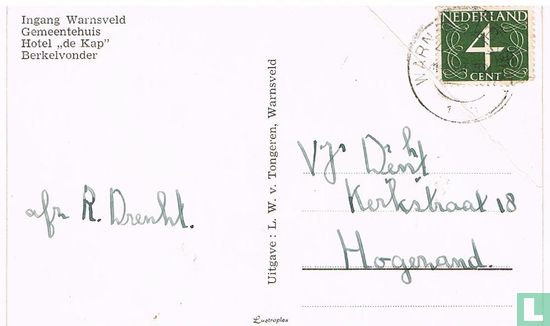 Ingang Warnsveld
Gemeentehuis
Hotel „de Kap"
Berkelvonder
NEDERLAND
4
CENT
WARN
Uitgave : L. W. v. Tongeren, Warnsveld
afz R. Drenht.
Kerkstraat 18
Hogezand.
Lustroplex
catawiki